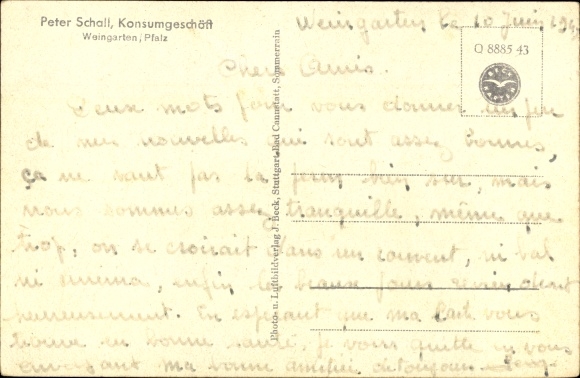 Peter Schall, Konsumgeschäft
Weingarten, Pfalz
Weingarten le 10 Juin
Q 8885 43
Photo- u. Luftbildverlag J. Beck, Stuttgart-Bad Cannstatt, Sommerrain
Chers Amis.
Deux mots pour vous donner un peu
de mes nouvelles qui sont assez bonnes,
ça ne vaut pas la bien sur, mais
nous sommes assez tranquille, même que
trop, on se croirait dans un couvent, ni bal
ni cinéma, enfin les beaux jours reviendront
heureusement. En espérant que ma carte vous
trouve en bonne santé, je vous quitte en vous
envoyant ma bonne amitiée de toujours